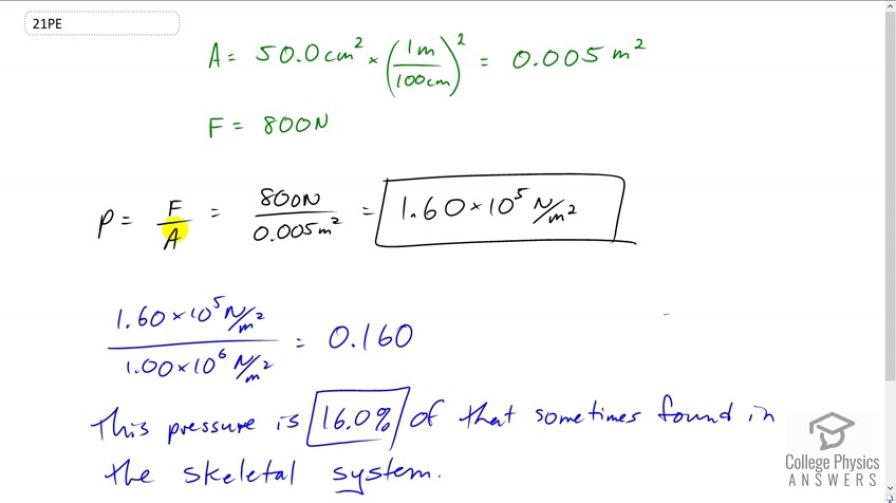 21PE
A = 50.0cm² × (1m/100cm)² = 0.005 m²
F = 800N
P = F/A = 800N/0.005m² = 1.60×10⁵ N/m²
1.60×10⁵ N/m² / 1.00×10⁶ N/m² = 0.160
This pressure is 16.0% of that sometimes found in
the skeletal system.
College Physics
ANSWERS